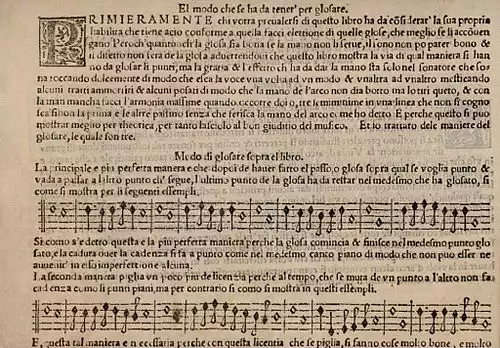 El modo che se ha da tener' per glosare.
PRIMIERAMENTE chi vorra prevalersi di questo libro ha da cõsiderar' la sua propria
habilita che tiene acio conforme a quella facci elettione di quelle glose, che meglio se li accõuen
gano Peroch'quantonch la glosa sia bona se la mano non li serue, il sono non po parer bono &
il difetto non sera de la glosa
la gratia & l'effetto ch ha da dar la mano sta solo nel sonatore che so
na toccando dolcemente di modo che esca la voce vna volta ad vn modo & vnaltra ad vnaltro mesticando
alcuni tratti ammortiti & alcuni posati di modo che la mano de l'arco non dia botto ma lo tiri queto, & con
la man mancha facci l'armonia massime quando occorre doi o, tre semiminime in vna linea che non si cogno
sca sinon la prima e le altre passino senza che ferisca la mano del arco come ho detto. E perche questo si puo
mostrar meglio per theorica, per tanto lasciolo al bon giuditio del musico. Et io trattaro dele maniere del
glosare, le qual sun tre.
Modo di glosare sopra el libro.
La principale e piu perfetta manera e che dopoi de hauer fatto el passo, o glosa sopra qual se voglia punto &
vada a passar a l'altro punto ch' segue, l'ultimo punto de la glosa ha da restar nel medesimo che ha glosato, si
come si mostra per li seguenti essempli.
Si como s'e detto questa e la piu perfetta maniera perche la glosa comincia & finisce nel medesimo punto glo
sato, e la caduta ouer la cadenza si fa a punto come nel medesimo canto piano di modo che non puo esser ne
auuenir' in esso imperfettione alcuna.
La seconda maniera piglia vn poco piu de licenzia perche al tempo, che se mura de vn punto a l'altro non fa
cadenza como li punti piani, ma per contrario si como si mostra in questi essempli.
E, questa tal maniera e necessaria perche con questa licentia che se piglia, si fanno cose molto bone, e molto